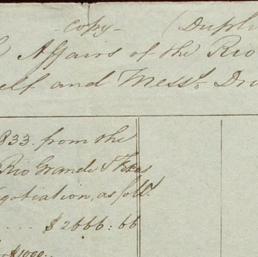 copy - (Dupli
Affairs of the Rio
elf and Mess.rs Dro
1833. from the
Rio Grande & Texas
egotiation, as foll.s
.... $2666:66
$1000